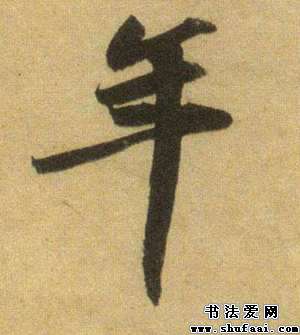 年
书法爱网
www.shufaai.com